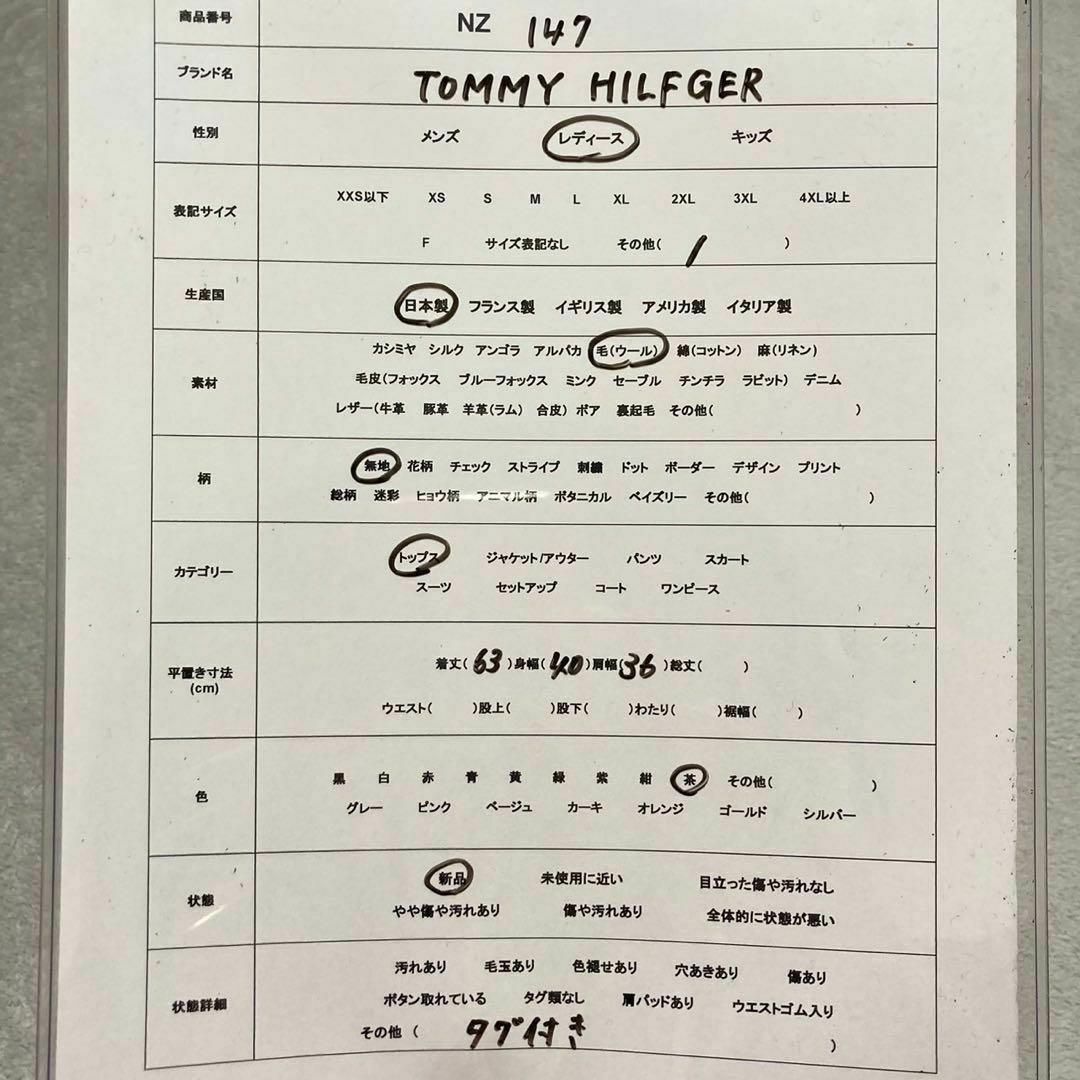 商品番号 NZ 147
ブランド名 TOMMY HILFGER
性別 メンズ レディース キッズ
表記サイズ
XXS以下 XS S M L XL 2XL 3XL 4XL以上
F サイズ表記なし その他( 1 )
生産国 日本製 フランス製 イギリス製 アメリカ製 イタリア製
素材
カシミヤ シルク アンゴラ アルパカ 毛(ウール) 綿(コットン) 麻(リネン)
毛皮(フォックス ブルーフォックス ミンク セーブル チンチラ ラビット) デニム
レザー(牛革 豚革 羊革(ラム) 合皮) ボア 裏起毛 その他( )
柄
無地 花柄 チェック ストライプ 刺繍 ドット ボーダー デザイン プリント
総柄 迷彩 ヒョウ柄 アニマル柄 ボタニカル ペイズリー その他( )
カテゴリー
トップス ジャケット/アウター パンツ スカート
スーツ セットアップ コート ワンピース
平置き寸法
(cm)
着丈( 63 )身幅( 40 )肩幅( 36 )総丈( )
ウエスト( )股上( )股下( )わたり( )裾幅( )
色
黒 白 赤 青 黄 緑 紫 紺 茶 その他( )
グレー ピンク ベージュ カーキ オレンジ ゴールド シルバー
状態
新品 未使用に近い 目立った傷や汚れなし
やや傷や汚れあり 傷や汚れあり 全体的に状態が悪い
状態詳細
汚れあり 毛玉あり 色褪せあり 穴あきあり 傷あり
ボタン取れている タグ類なし 肩パッドあり ウエストゴム入り
その他 ( タグ付き )